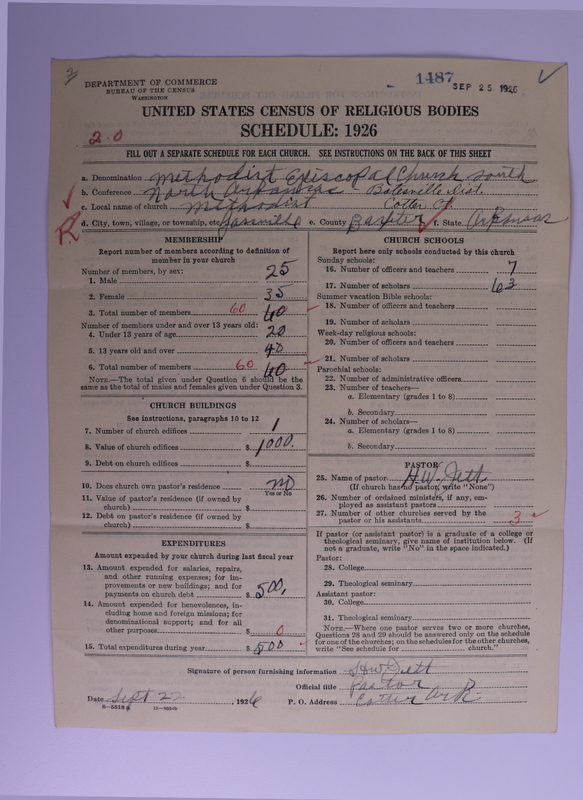 3
DEPARTMENT OF COMMERCE
BUREAU OF THE CENSUS
WASHINGTON
1487
SEP 25 1926
UNITED STATES CENSUS OF RELIGIOUS BODIES
2.0
SCHEDULE: 1926
FILL OUT A SEPARATE SCHEDULE FOR EACH CHURCH. SEE INSTRUCTIONS ON THE BACK OF THIS SHEET
a. Denomination Methodist Episcopal Church South
b. Conference North Arkansas Batesville Dist.
c. Local name of church Methodist Cotter Ct.
d. City, town, village, or township, etc. Gassville e. County Baxter f. State Arkansas
R
MEMBERSHIP
Report number of members according to definition of member in your church
Number of members, by sex:
1. Male 25
2. Female 35
3. Total number of members 60 60
Number of members under and over 13 years old:
4. Under 13 years of age 20
5. 13 years old and over 40
6. Total number of members 60 60
NOTE.—The total given under Question 6 should be the same as the total of males and females given under Question 3.
CHURCH BUILDINGS
See instructions, paragraphs 10 to 12
7. Number of church edifices 1
8. Value of church edifices $ 1000.
9. Debt on church edifices $
10. Does church own pastor's residence no
Yes or No
11. Value of pastor's residence (if owned by church) $
12. Debt on pastor's residence (if owned by church) $
EXPENDITURES
Amount expended by your church during last fiscal year
13. Amount expended for salaries, repairs, and other running expenses; for improvements or new buildings; and for payments on church debt $ 500.
14. Amount expended for benevolences, including home and foreign missions; for denominational support; and for all other purposes $ 0
15. Total expenditures during year $ 500
CHURCH SCHOOLS
Report here only schools conducted by this church
Sunday schools:
16. Number of officers and teachers 7
17. Number of scholars 63
Summer vacation Bible schools:
18. Number of officers and teachers
19. Number of scholars
Week-day religious schools:
20. Number of officers and teachers
21. Number of scholars
Parochial schools:
22. Number of administrative officers
23. Number of teachers—
a. Elementary (grades 1 to 8)
b. Secondary
24. Number of scholars—
a. Elementary (grades 1 to 8)
b. Secondary
PASTOR
25. Name of pastor H.W. Jett
(If church has no pastor, write "None")
26. Number of ordained ministers, if any, employed as assistant pastors
27. Number of other churches served by the pastor or his assistants 3
If pastor (or assistant pastor) is a graduate of a college or theological seminary, give name of institution below. (If not a graduate, write "No" in the space indicated.)
Pastor:
28. College
29. Theological seminary
Assistant pastor:
30. College
31. Theological seminary
NOTE.—Where one pastor serves two or more churches, Questions 28 and 29 should be answered only on the schedule for one of the churches; on the schedules for the other churches, write "See schedule for church."
Signature of person furnishing information H W Jett
Official title Pastor
Date Sept 22, 1926 P. O. Address Cotter Ark